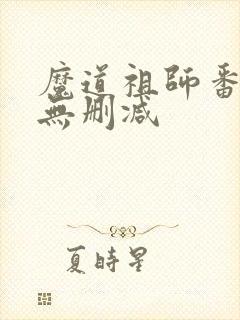 魔道祖師番
無刪減
夏時星